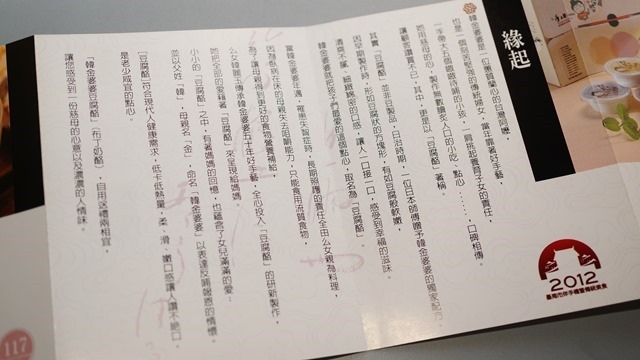 緣起
韓金婆婆是一位慣質蘭心的台灣阿嬤，
也是一個刻苦堅強的傳統婦女，當年靠著好手藝，
一手帶大五個嗷嗷待哺的小孩，一肩挑起養育子女的責任，
她用慈母的心，製作無數膾炙人口的小吃、點心……，口碑相傳。
讓顧客讚賞不已，其中，更是以「豆腐酪」著稱。
其實「豆腐酪」並非豆製品，日治時期，一位日本師傅贈予韓金婆婆的獨家配方，
因早期製作時，形如豆腐狀的方塊形，有如豆腐般軟嫩，
清爽不膩、細緻綿密的口感，讓人一口接一口，感受到幸福的滋味。
韓金婆婆就把孩子們最愛的這個點心，取名為「豆腐酪」。
當韓金婆婆年邁，罹患失智症時，長期照護的責任全由么女親為料理，
因為臥病在床的母親失去咀嚼能力，只能食用流質食物，
為了讓母親得到更好的食物營養補給，
么女韓麗卿傳承韓金婆婆五十年好手藝，全心投入「豆腐酪」的研新製作，
她把全部的愛藉著「豆腐酪」來呈現給媽媽
小小的「豆腐酪」之中，有著媽媽的回憶，也蘊含了女兒滿滿的愛：
並以父姓「韓」，母親名「金」，命名「韓金婆婆」以表達反哺報恩的情懷。
「豆腐酪」符合現代人健康需求，低卡低熱量，柔、滑、嫩口感讓人讚不絕口。
是老少咸宜的點心。
「韓金婆婆豆腐酪」（布丁奶酪），自用送禮兩相宜，
讓您感受到一份慈母的心意以及濃濃的人情味。
2012
臺南市伴手禮暨傳統美食
117